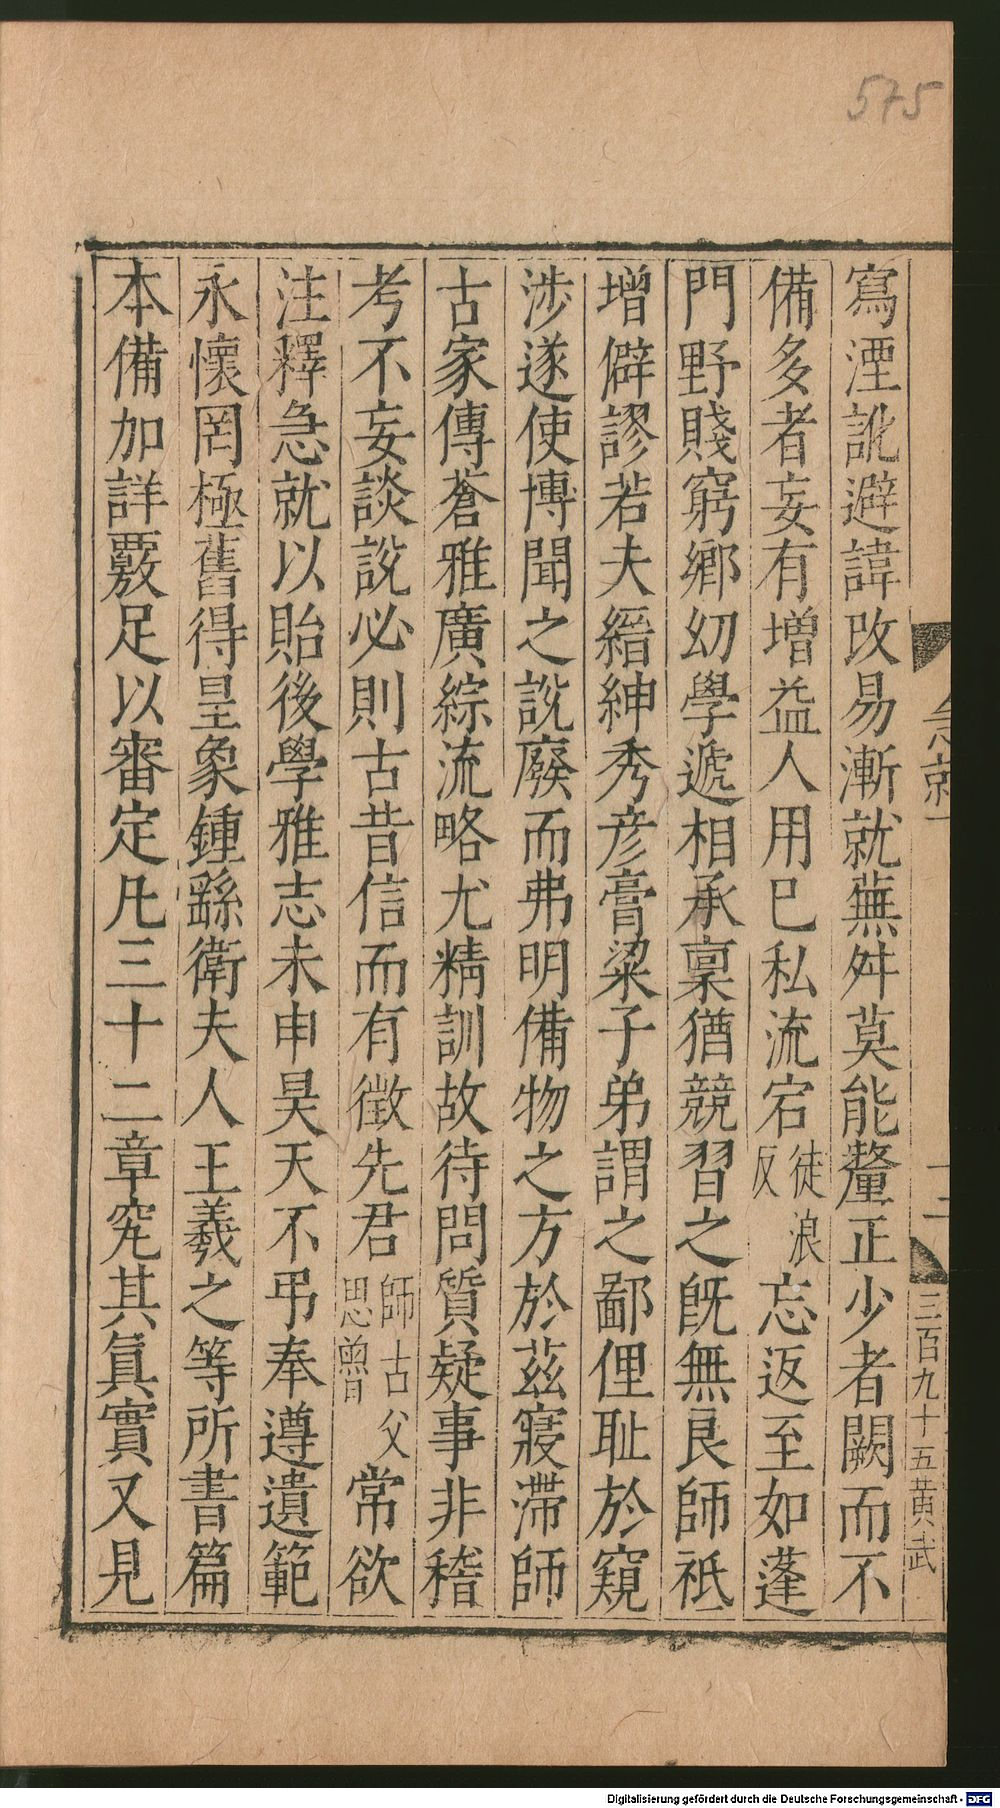 575
寫湮訛避諱改易漸就蕪舛莫能釐正少者闕而不
備多者妄有增益人用己私流宕徒浪反忘返至如蓬
門野賤窮鄉幼學遞相承稟猶競習之旣無良師祇
增僻謬若夫縉紳秀彥膏粱子弟謂之鄙俚恥於窺
涉遂使博聞之說廢而弗明備物之方於茲寢滯師
古家傳蒼雅廣綜流略尤精訓故待問質疑事非稽
考不妄談說必則古昔信而有徵先君師古父思魯常欲
注釋急就以貽後學雅志未申昊天不弔奉遵遺範
永懷罔極舊得皇象鍾繇衛夫人王羲之等所書篇
本備加詳覈足以審定凡三十二章究其眞實又見
急就一
二
三百九十五黄武
Digitalisierung gefördert durch die Deutsche Forschungsgemeinschaft - DFG